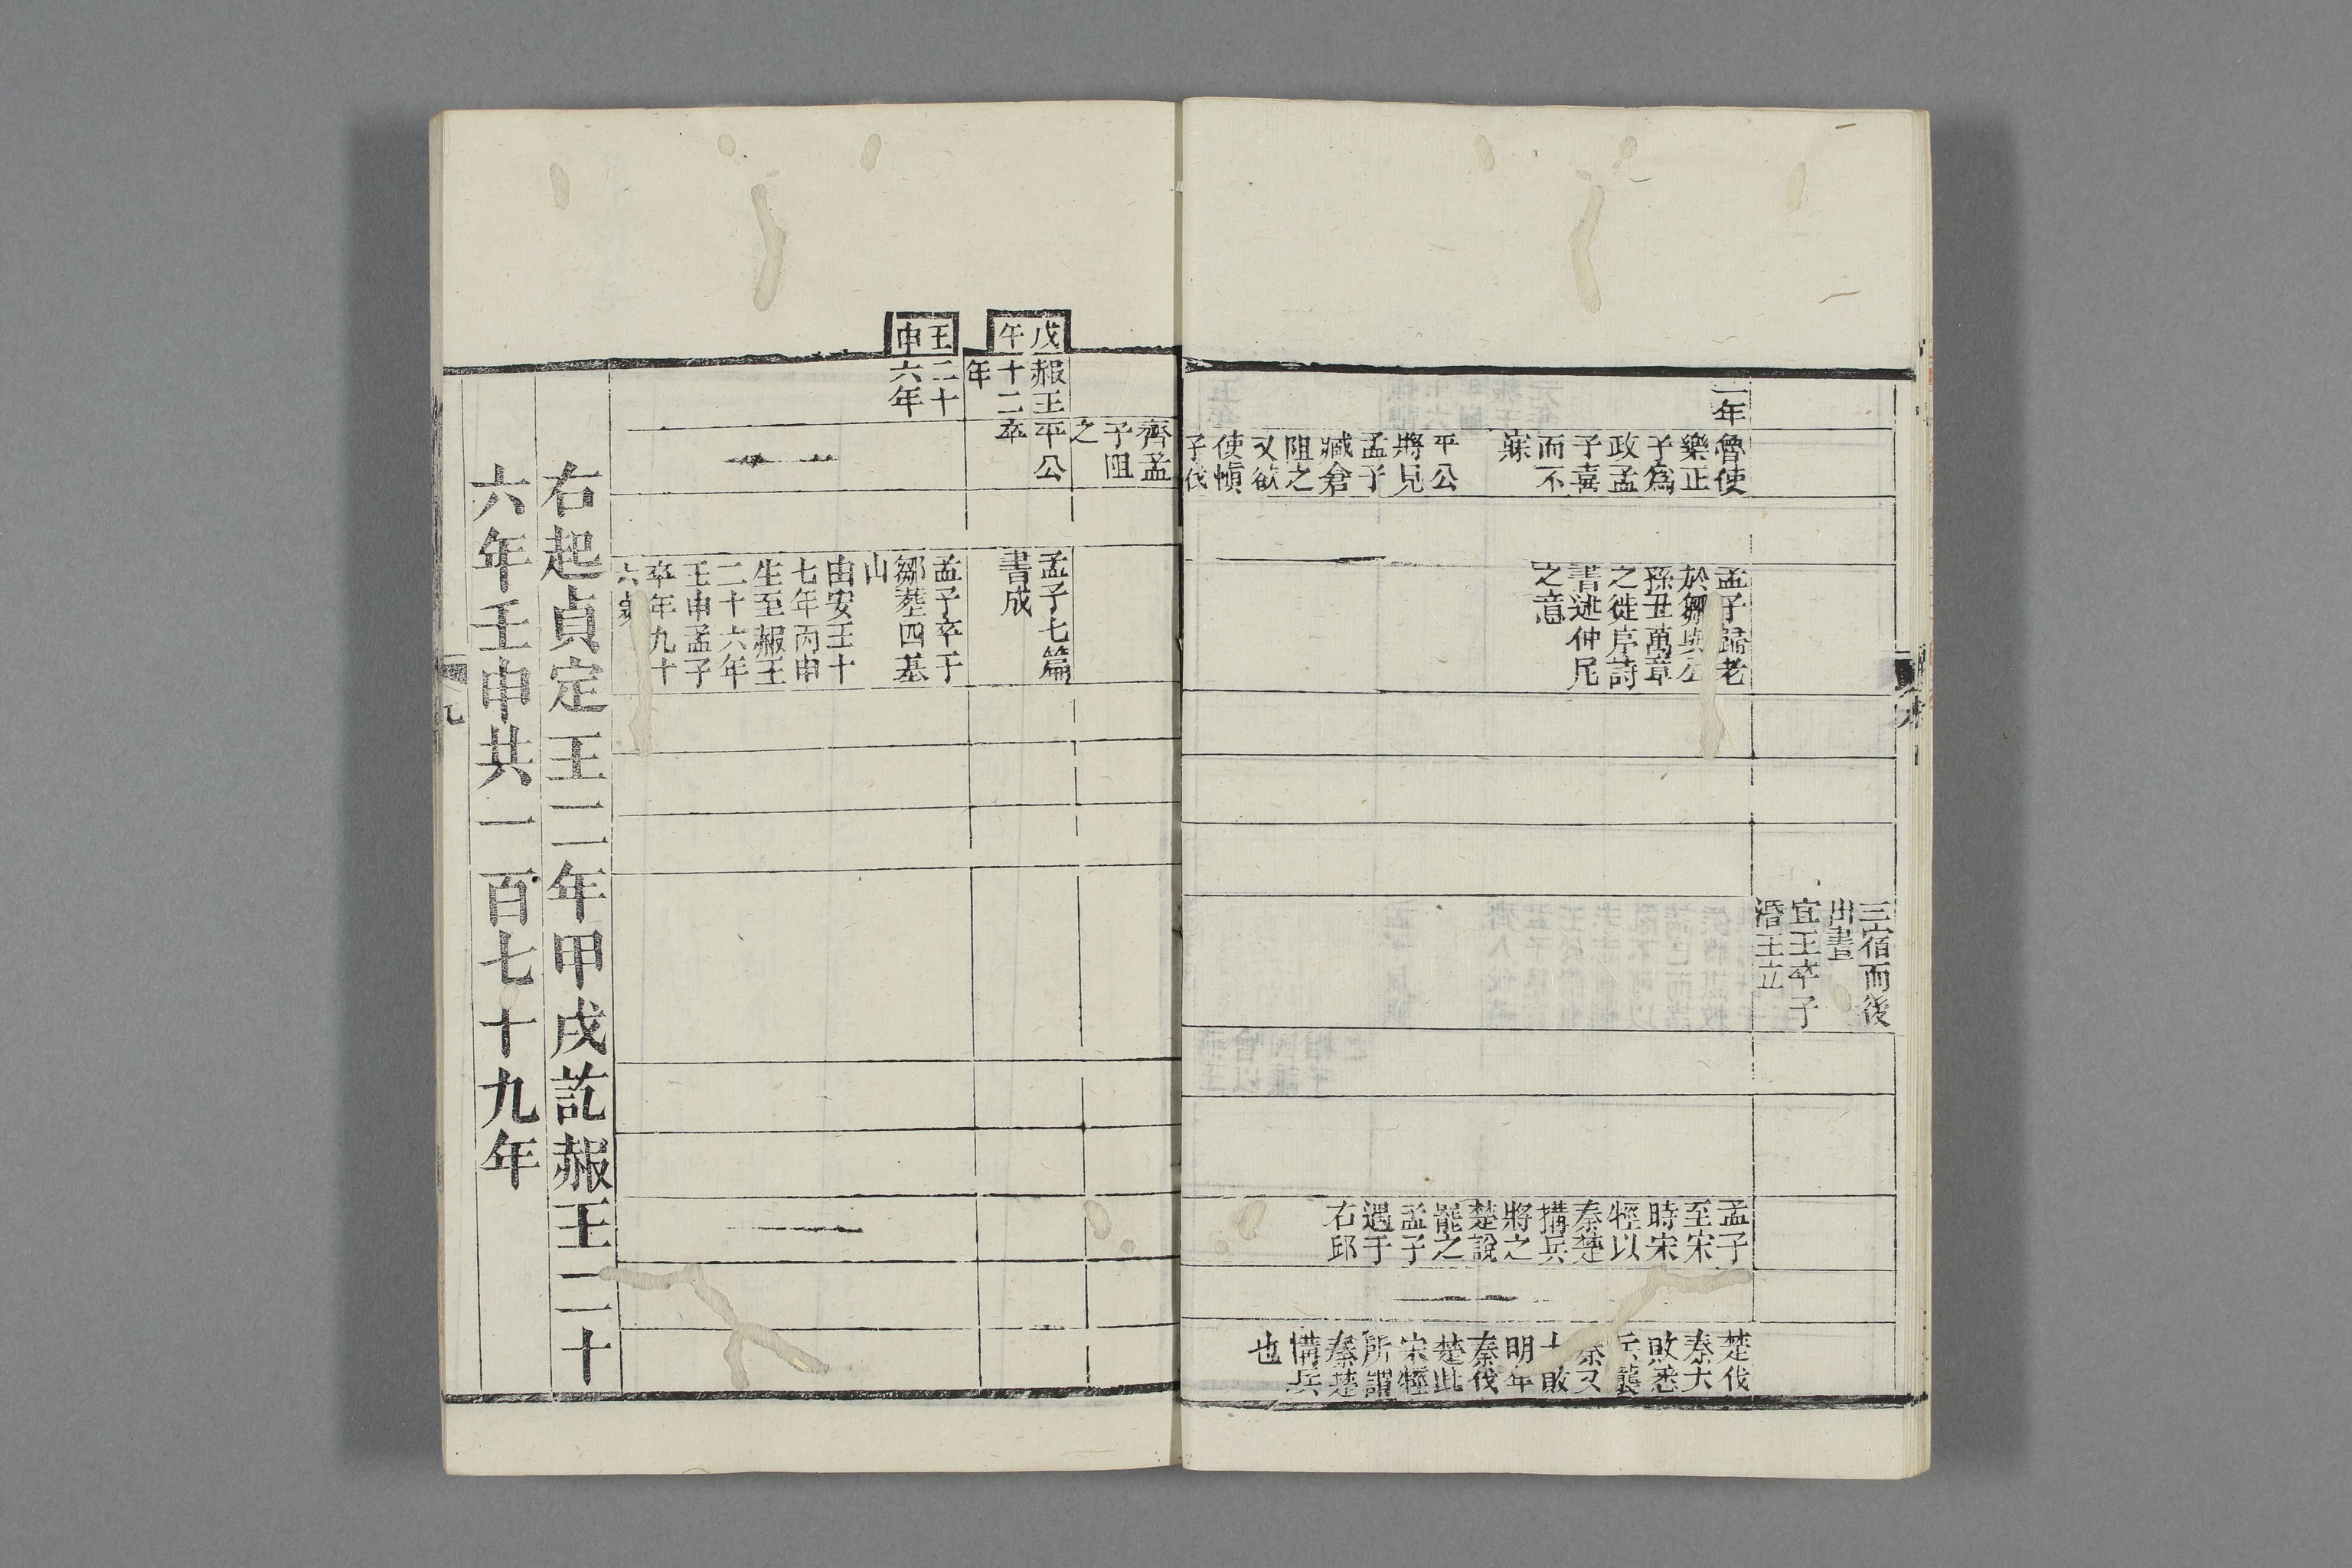 三宿而後
出晝
宣王卒子
湣王立
二年
魯使
樂正
子爲
政孟
子喜
而不
寐
平公
將見
孟子
臧倉
阻之
又欲
使愼
子伐
孟子歸老
於鄒與公
孫丑萬章
之徙序詩
書述仲尼
之意
孟子
至宋
時宋
牼以
秦楚
搆兵
將之
楚說
罷之
孟子
遇于
右邱
楚伐
秦大
敗悉
兵襲
秦又
大敗
明年
秦伐
楚此
宋牼
所謂
秦楚
構兵
也
齊孟
子阻
之
戊
午
赧王
十二
年
平公
卒
孟子七篇
書成
壬
申
二十
六年
孟子卒于
鄒葬四基
山
由安王十
七年丙申
生至赧王
二十六年
壬申孟子
卒年九十
六歲
右起貞定王二年甲戌訖赧王二十
六年壬申共一百七十九年
九